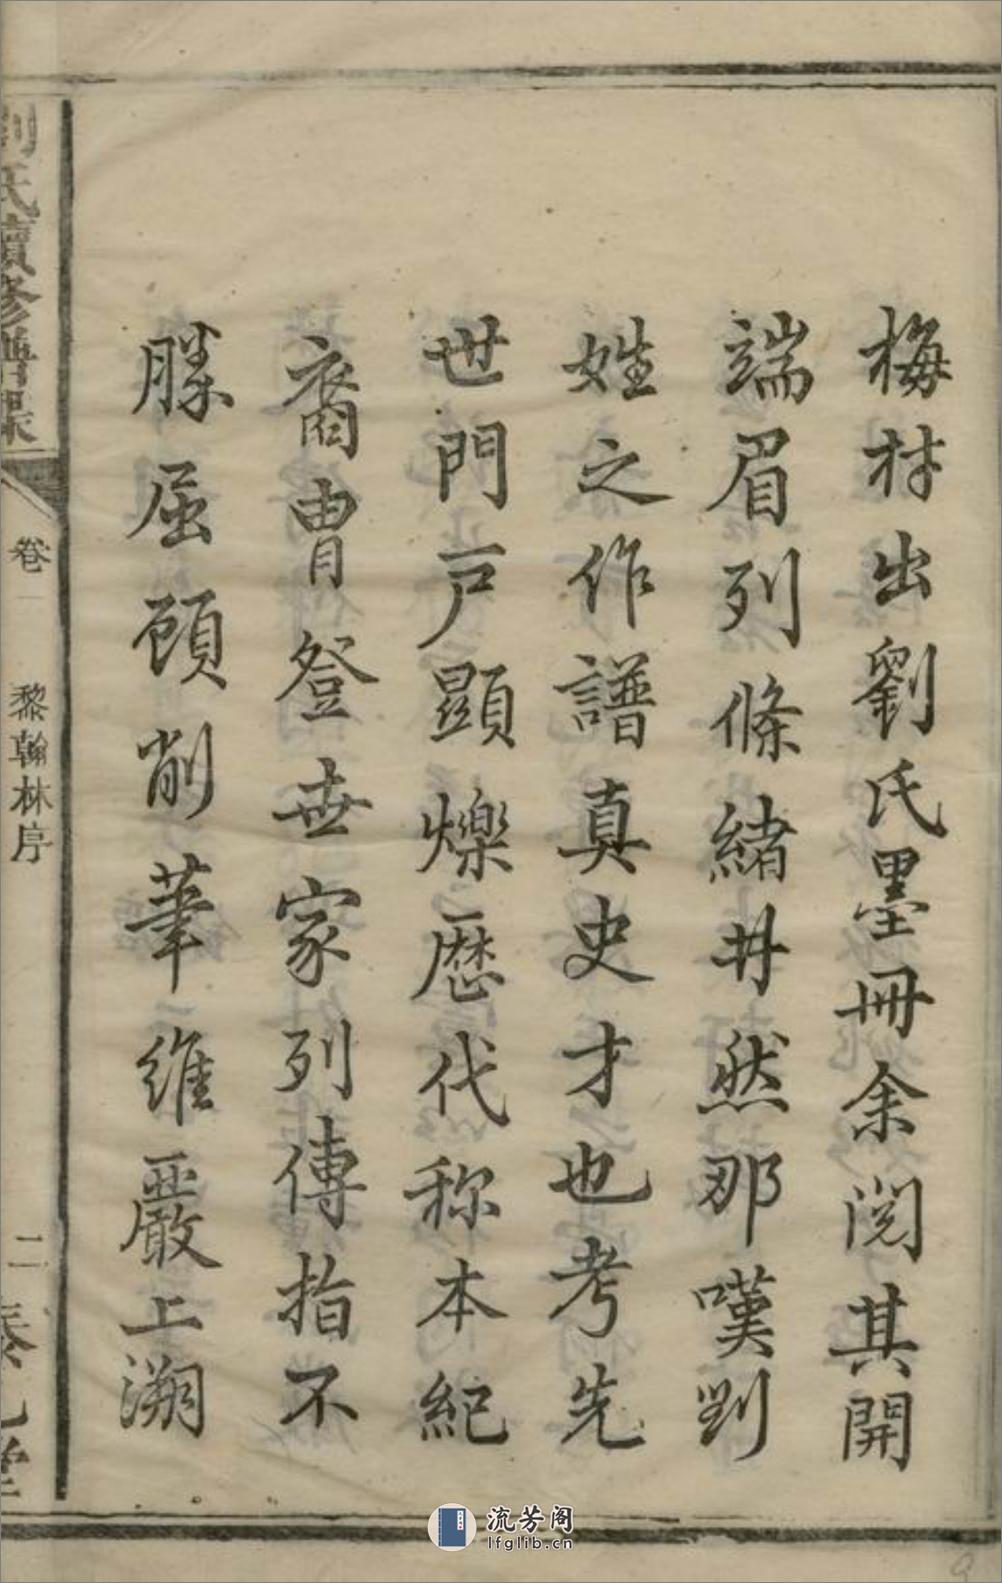 梅村出劉氏墨冊余閱其開
端眉列條緒井然那嘆劉
姓之作譜真史才也考先
世門戸顯爍歷代称本紀
裔冑登世家列傳指不
勝屈顧削筆維嚴上溯
劉氏續修譜
卷一
黎翰林序
二
堂
流芳阁
lfglib.cn